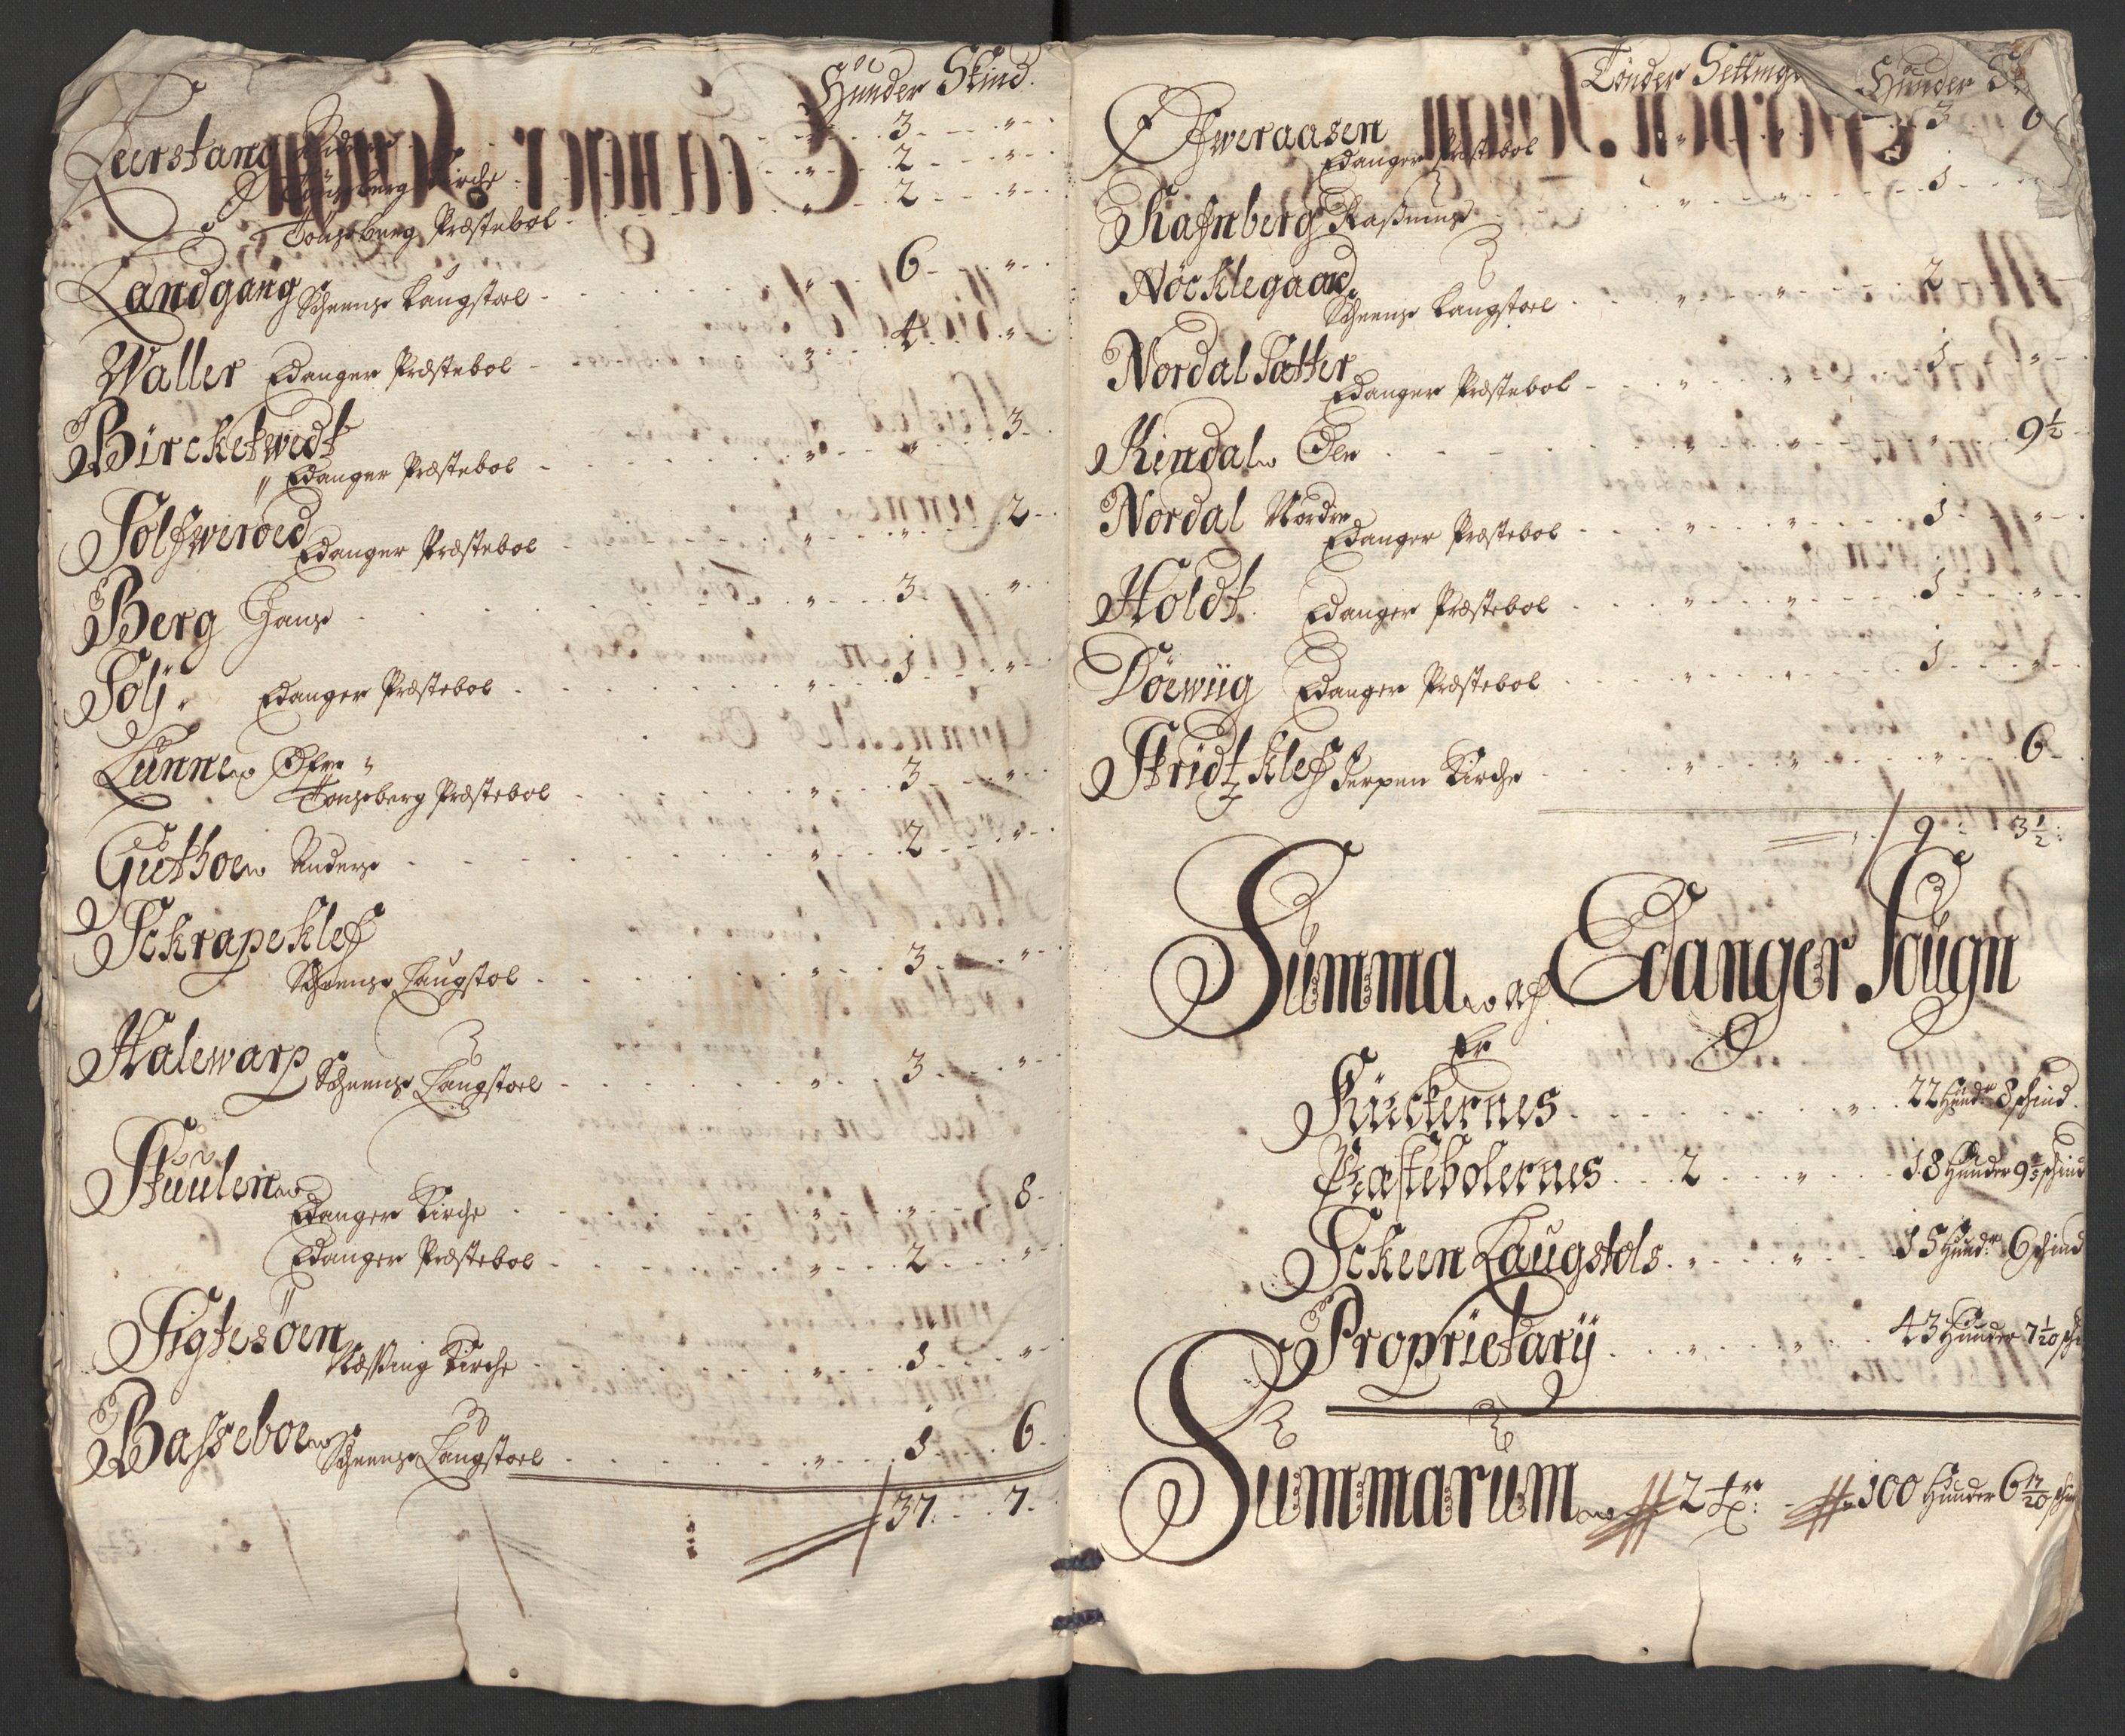 Hünder Skind.
Leerstang 3 "
Tonsberg Kirche 2 "
Tonsberg Præstebol 2 "
Landgang Scheens Laugstoel " 6 "
Waller Edanger Præstebol " 4 "
Bircketwedt
Edanger Præstebol " " 3
Solfweroed Edanger Præstebol " " 2
Berg Hans " 3 "
Solj. Edanger Præstebol " 1 "
Lunne Øfre
Tonsberg Præstebol " 3 "
Guthoe Anders " 2 "
Schrapeklef
Scheens Laugstol " 3 "
Halewarp Scheens Laugstoel " 3 "
Stuulen
Edanger Kirche " " 8
Edanger Præstebol " 2 "
Sigtesöen Næssing Kirche 1 "
Basseboe Scheens Laugstoel " 1 6
37 7
Tönder Settinger Hünder
Ofweraasen Edanger Præstebol 3 6
Rafnberg Rasmus " " 1
Nöcklegaard Scheens Laugstoel " " 2 "
Nordal Satter Edanger Præstebol " " 1 "
Rindal Ole " " " 9½
Nordal Nordre Edanger Præstebol " " 1 "
Holdt Edanger Præstebol " " 1 "
Döewiig Edanger Præstebol " " 1 "
Stridtzklef Gerpen Kirche " " " 6
9 3½
Summa af Edanger Sougn
Er
Kirckernes " 22 Hünd: 8 skind
Præstebolernes 2 " 18 Hünder 9 skind
Scheen Laugstols " " 15 Hünd: 6 skind
Proprietarij " " 43 Hünder 7 1/20
Summarum 2 tr: 100 Hünder 6 17/20